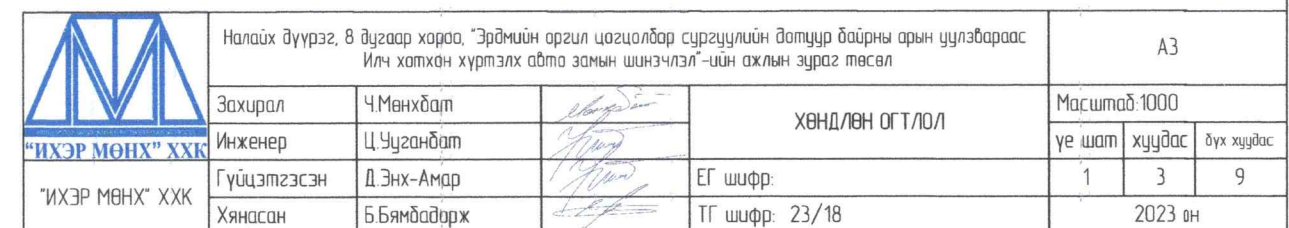 Налайх дүүрэг, 8 дугаар хороо, "Эрдмийн оргил цогцолбор сургуулийн дотуур байрны арын уулзвараас
Илч хотхон хүртэлх авто замын шинэчлэл"-ийн ажлын зураг төсөл
А3
"ИХЭР МӨНХ" ХХК
Захирал Ч.Мөнхбат
ХӨНДЛӨН ОГТЛОЛ
Масштаб:1000
Инженер Ц.Ууганбат
үе шат хуудас бүх хуудас
"ИХЭР МӨНХ" ХХК
Гүйцэтгэсэн Д.Энх-Амар
ЕГ шифр:
1 3 9
Хянасан Б.Бямбадорж
ТГ шифр: 23/18
2023 он